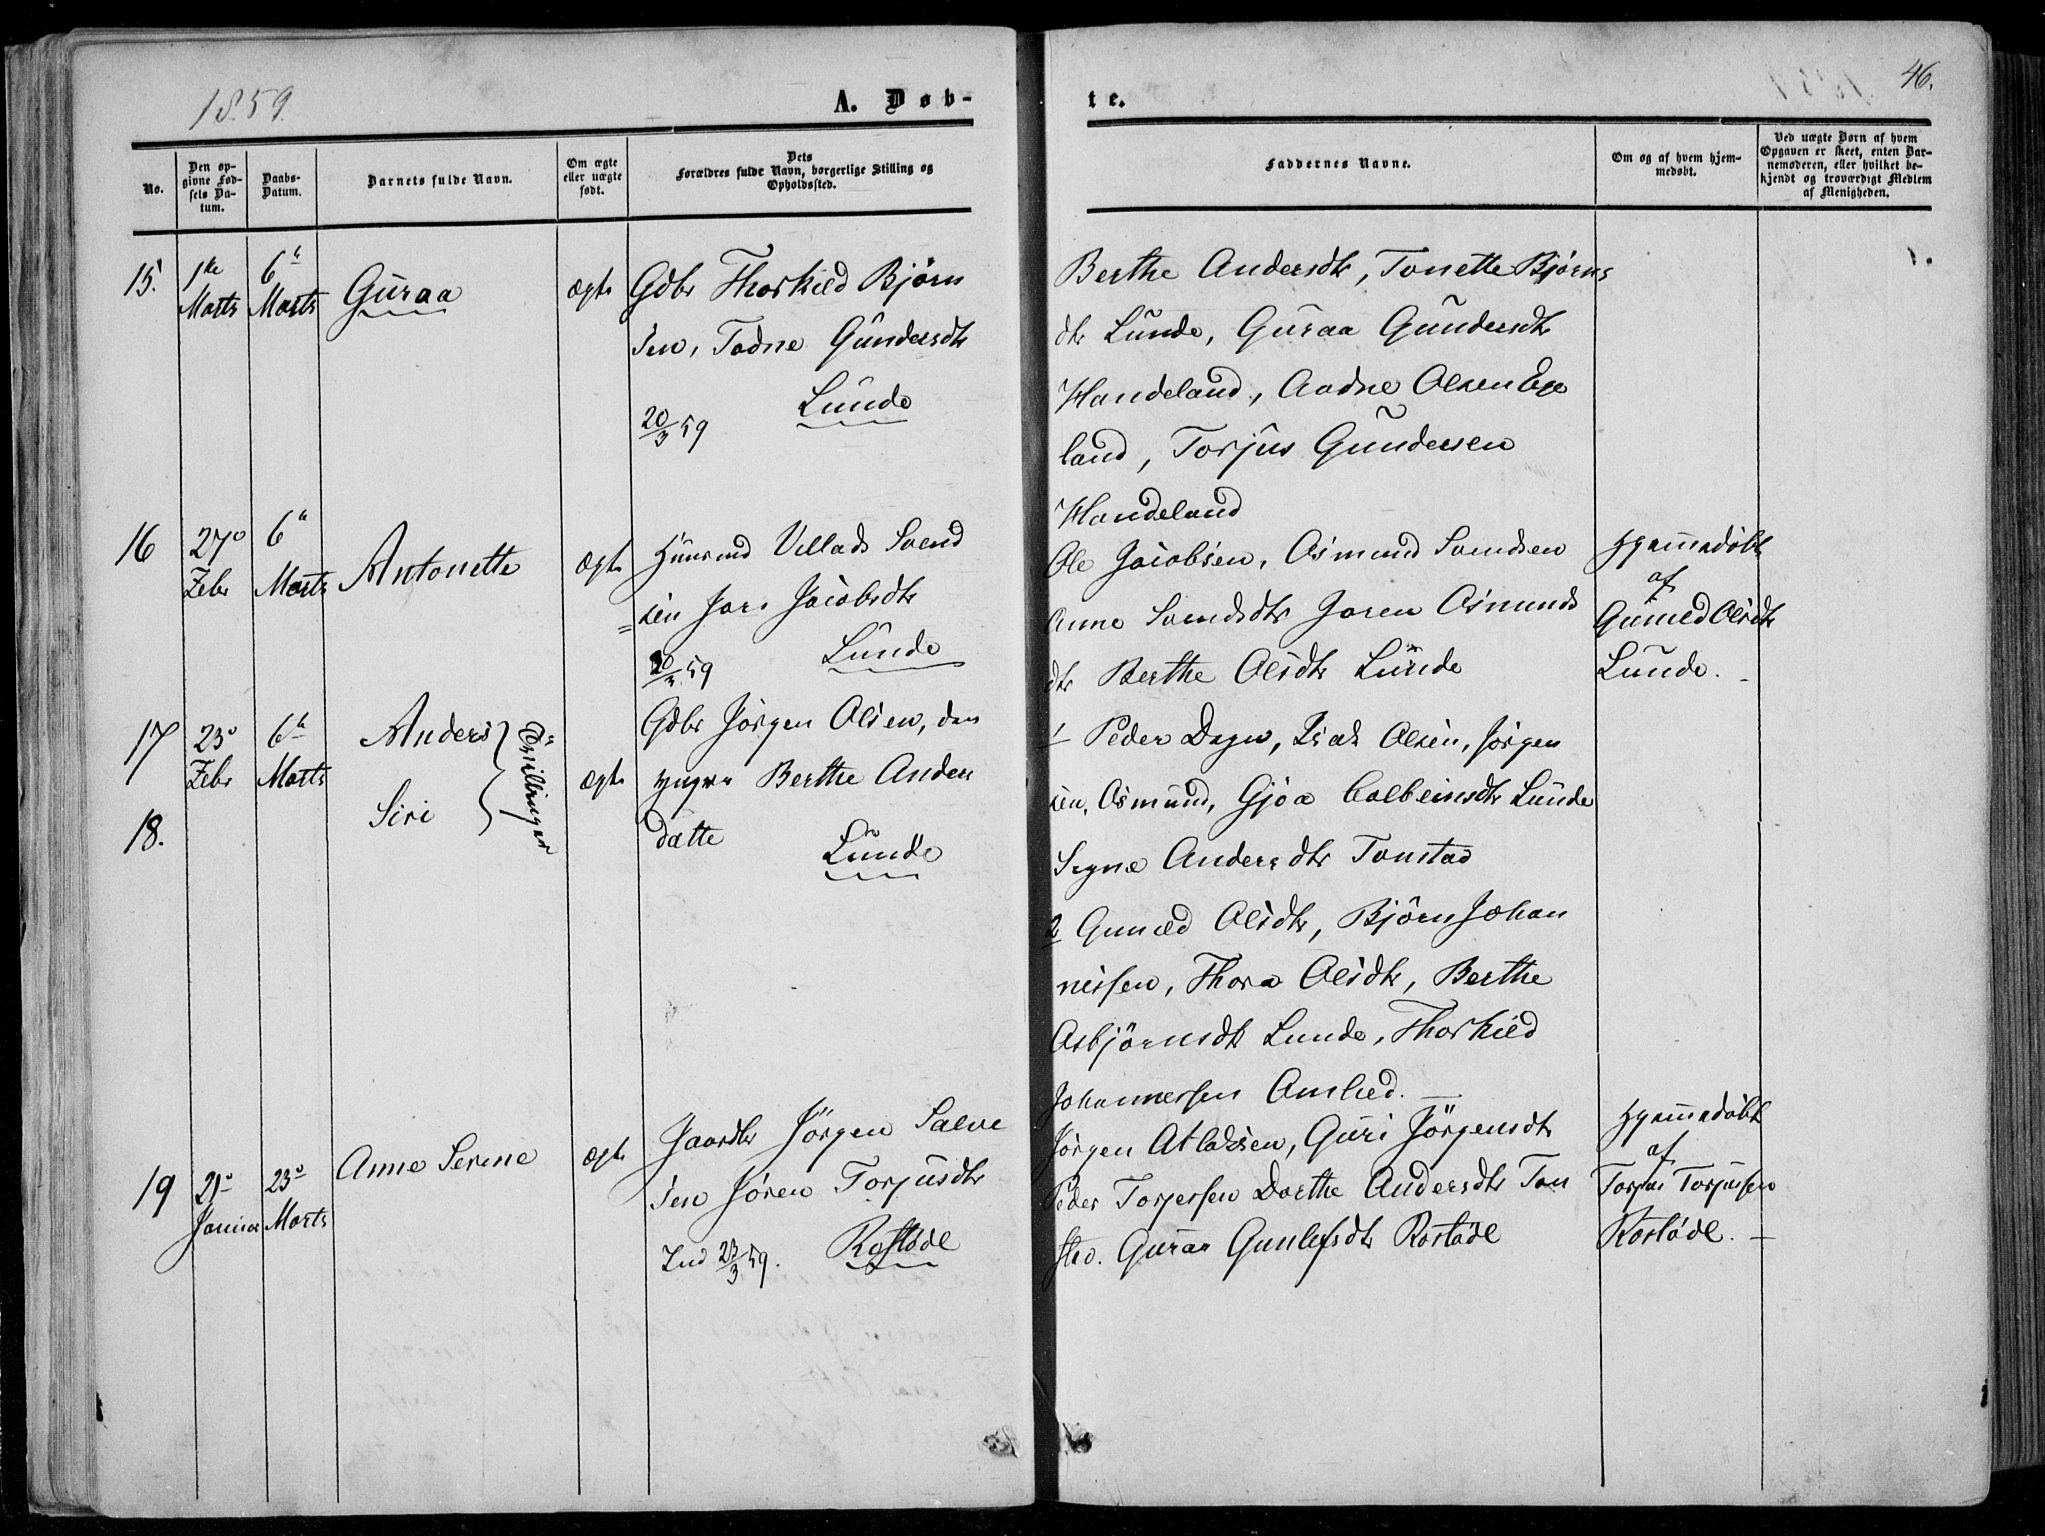 1859.
A. Døb-
te.
46.
No.
Den op-
givne Fød-
sels Da-
tum.
Daabs-
Datum.
Barnets fulde Navn.
Om ægte
eller uægte
født.
Dets
Forældres fulde Navn, borgerlige Stilling og
Opholdssted.
Faddernes Navne.
Om og af hvem hjem-
medøbt.
Ved uægte Børn af hvem
Opgaven er skeet, enten Bar-
nemoderen, eller hvilket be-
kjendt og troværdigt Medlem
af Menigheden.
15.
1ste
Marts
6te
Marts
Guraa
ægte
Gdbr Thorkild Bjørn
sen, Tadne Gundersdtr
Lunde
20/3 59
Berthe Andersdtr, Tonette Bjørns
dtr Lunde, Guraa Gundersdtr
Handeland, Aadne Olsen Ege
land, Torjus Gundersen
Handeland
16
27de
Febr
6te
Marts
Antonette
ægte
Huusmd Villads Svend
sen Jore Jacobsdtr
Lunde
20/3 59
Ole Jacobsen, Osmund Svendsen
Anne Svendsdtr Joren Osmunds
dtr Berthe Olsdtr Lunde
Hjemmedøbt
af
Guneld Olsdtr
Lunde.
17
23de
Febr
6te
Marts
Anders
Siri
Tvillinger
18.
ægte
Gdbr Jørgen Olsen, den
yngre Berthe Anders
datte
Lunde
1 Peder Dagn, Isak Olsen, Jørgen
sen, Osmund, Gjøa Colbeinsdtr Lunde
Signe Andersdtr Tonstad
2 Guneld Olsdtr, Bjørn Johan
nessen, Thora Olsdtr, Berthe
Asbjørnsdtr Lunde, Thorkild
Johannessen Omlied.
19
21de
Januar
23de
Marts
Anne Serine
ægte
Gaardbr Jørgen Salve
sen Jøren Torjusdtr
Ind 23/3 59.
Rostøde
Jørgen Atlaksen, Guri Jørgensdtr
Peder Torjersen Dorthe Andersdtr Ton
stad. Guraa Gunlefsdtr Rostøde
Hjemmedøbt
af
Torjus Torjussen
Rostøde.